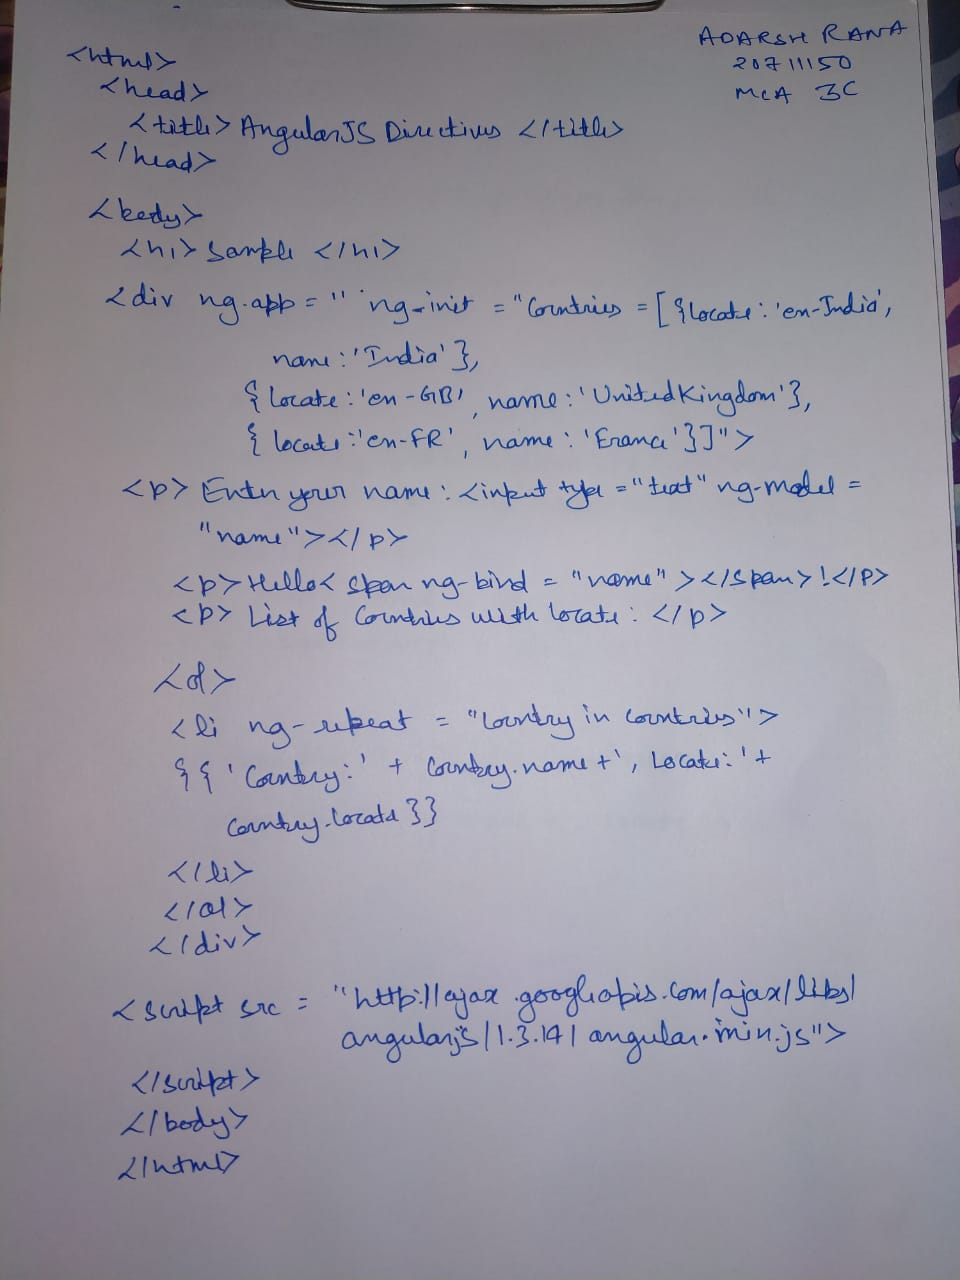 ADARSH RANA
20711150
MCA 3C
<html>
<head>
<title> AngularJS Directives </title>
</head>
<body>
<h1> Sample </h1>
<div ng.app = "" ng-init = "Countries = [{locate: 'en-India',
name: 'India'},
{locate: 'en-GB', name: 'United Kingdom'},
{locate: 'en-FR', name: 'France'}]">
<p> Enter your name: <input type = "text" ng-model =
"name"></p>
<p> Hello < span ng-bind = "name" ></span>!</p>
<p> List of Countries with locate: </p>
<ol>
<li ng-repeat = "Country in Countries">
{{ 'Country:' + Country.name + ', Locate: ' +
Country.locate }}
</li>
</ol>
</div>
<script src = "http://ajax.googleapis.com/ajax/libs/
angularjs/1.3.14/angular.min.js">
</script>
</body>
</html>